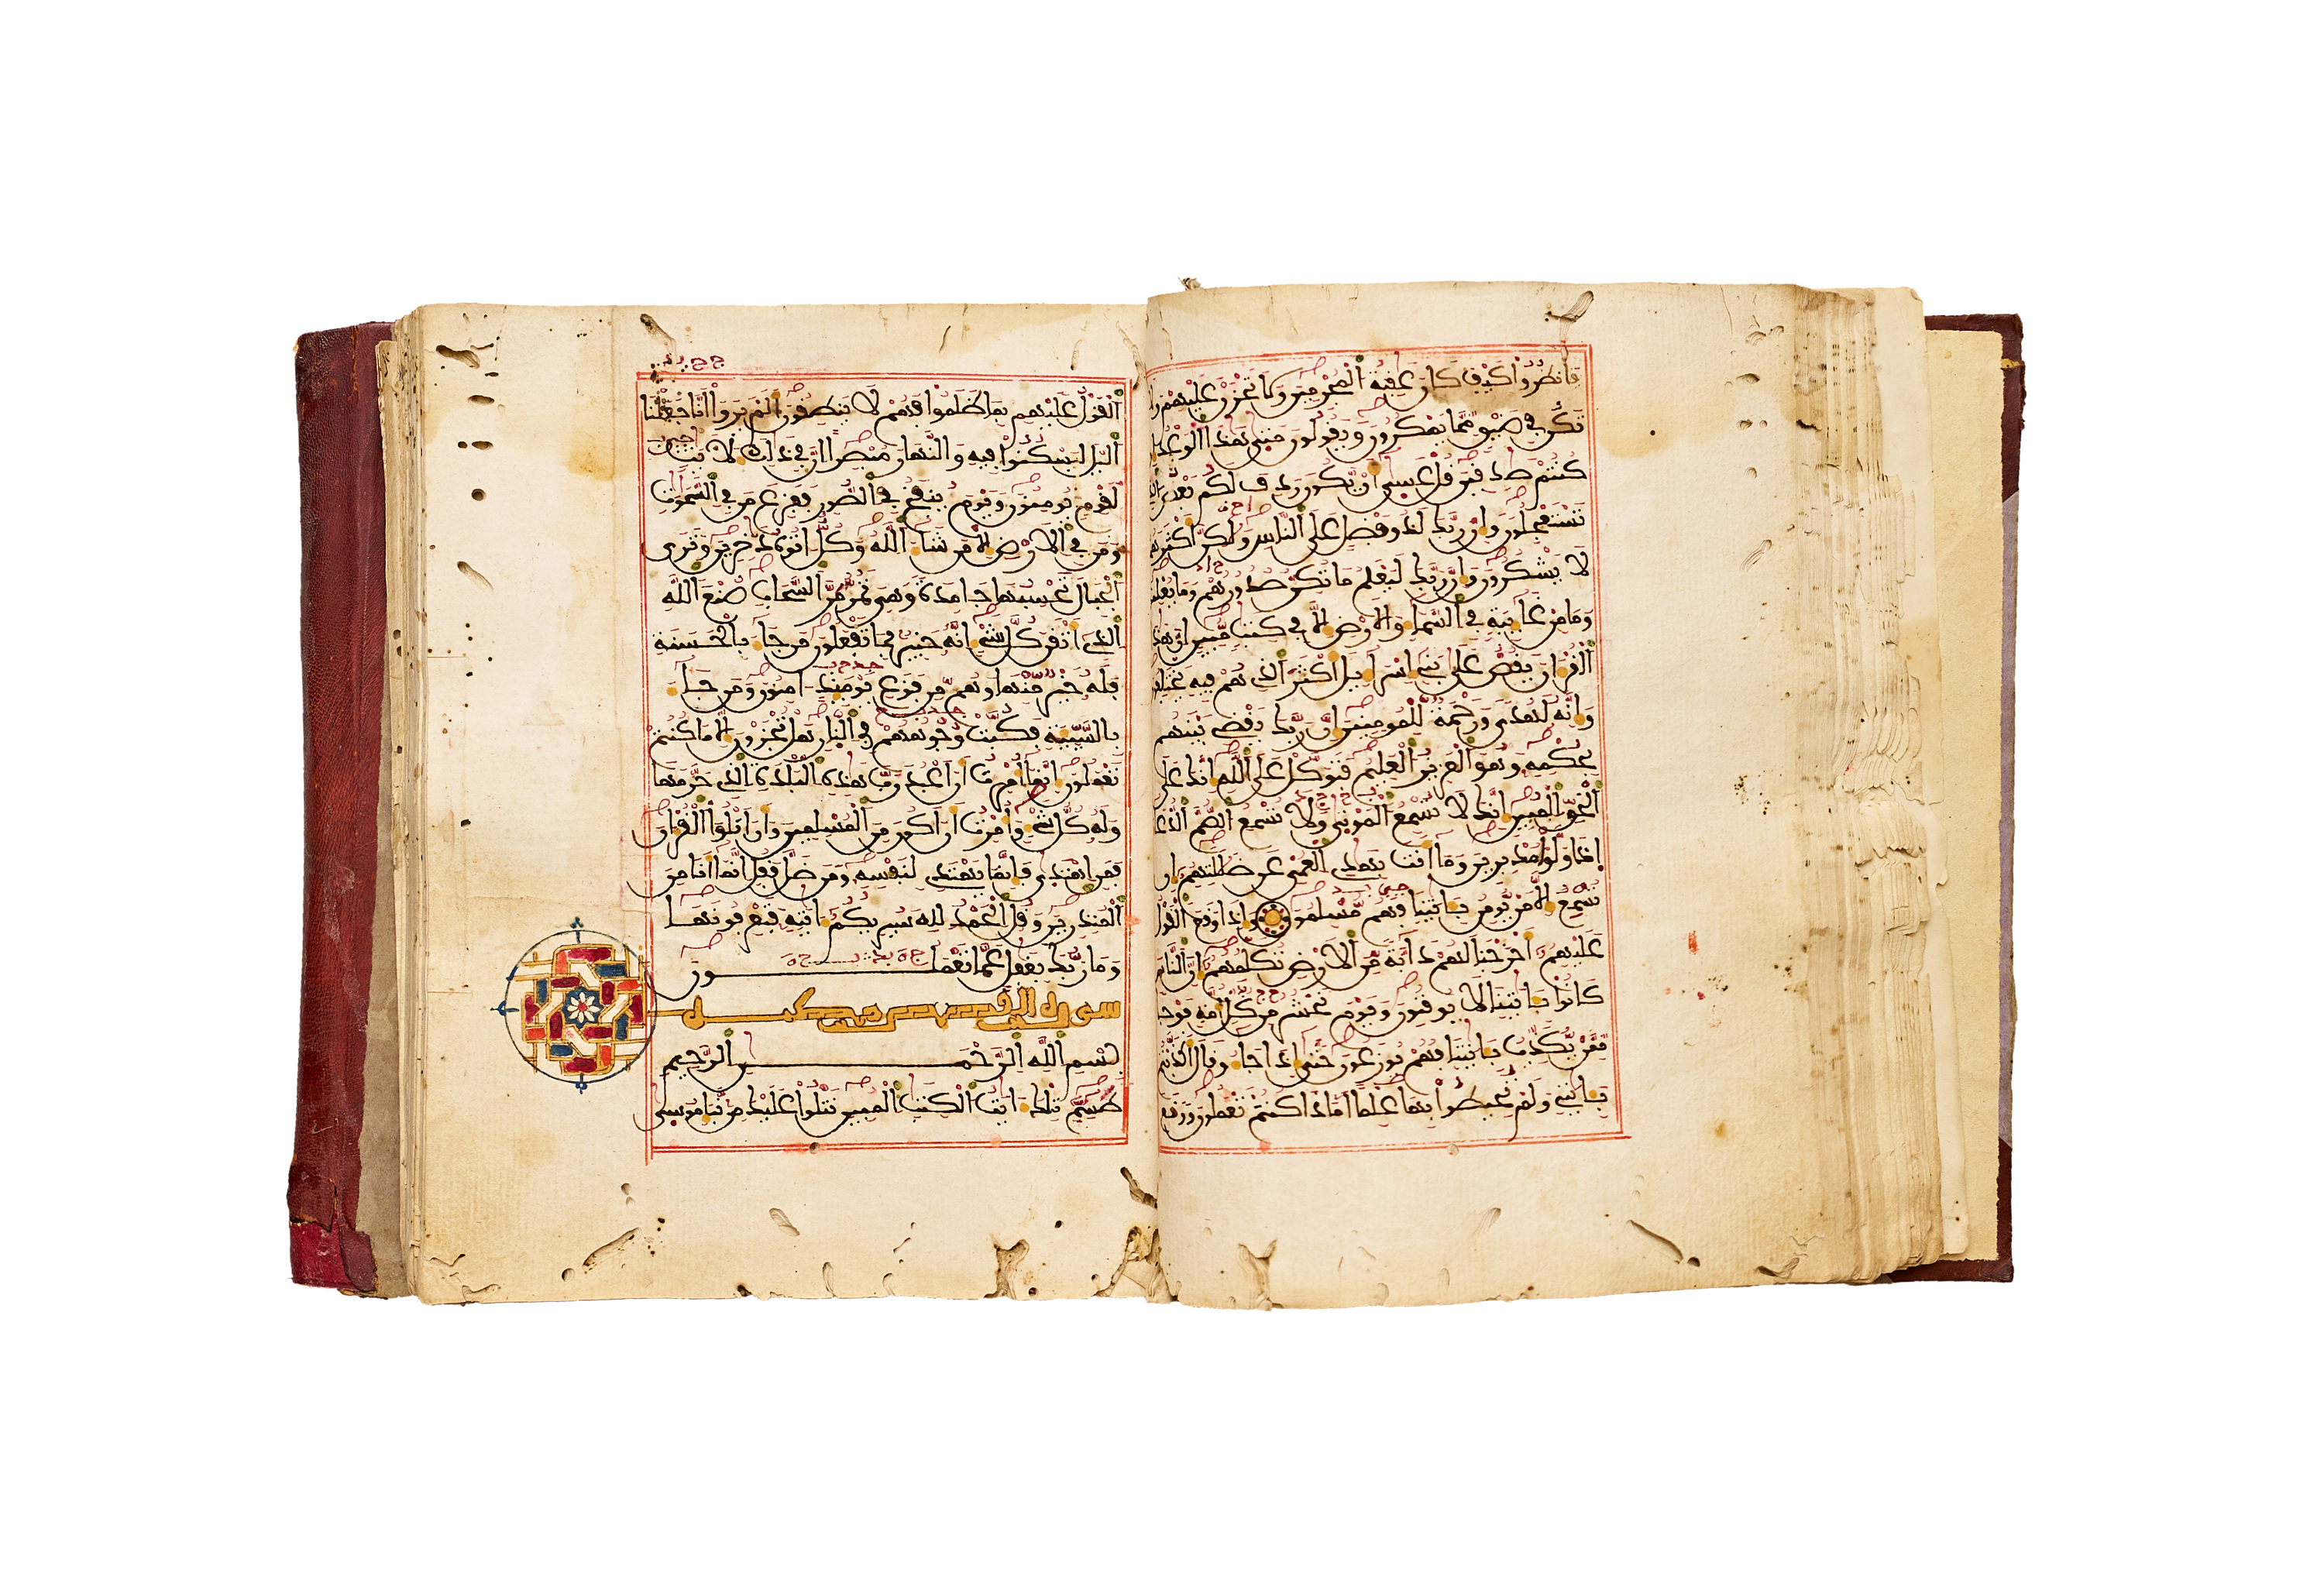 فانظروا كيف كان عقبة المجرمين ولا تحزن عليهم ولا
تكن في ضيق مما يمكرون ويقولون متى هذا الوعد
كنتم صدقين قل عسى أن يكون ردف لكم بعض الذي
تستعجلون وإن ربك لذو فضل على الناس ولكن أكثرهم
لا يشكرون وإن ربك ليعلم ما تكن صدورهم وما يعلنون
وما من غائبة في السماء والأرض إلا في كتب مبين إن هذا
القرءان يقص على بني إسراءيل أكثر الذي هم فيه يختلفون
وإنه لهدى ورحمة للمومنين إن ربك يقضي بينهم
بحكمه وهو العزيز العليم فتوكل على الله إنك على
الحق المبين إنك لا تسمع الموتى ولا تسمع الصم الدعاء
إذا ولوا مدبرين وما أنت بهدي العمي عن ضللتهم إن
تسمع إلا من يومن بئايتنا فهم مسلمون وإذا وقع القول
عليهم أخرجنا لهم دابة من الأرض تكلمهم إن الناس
كانوا بئايتنا لا يوقنون ويوم نحشر من كل أمة فوجا
ممن يكذب بئايتنا فهم يوزعون حتى إذا جاءو قال أكذبتم
بئايتي ولم تحيطوا بها علما أماذا كنتم تعملون ووقع
القول عليهم بما ظلموا فهم لا ينطقون ألم يروا أنا جعلنا
اليل ليسكنوا فيه والنهار مبصرا إن في ذلك لأيت
لقوم يومنون ويوم ينفخ في الصور ففزع من في السموت
ومن في الأرض إلا من شاء الله وكل ءاتوه دخرين وترى
الجبال تحسبها جامدة وهي تمر مر السحاب صنع الله
الذي أتقن كل شيء إنه خبير بما تفعلون من جاء بالحسنة
فله خير منها وهم من فزع يومئذ ءامنون ومن جاء
بالسيئة فكبت وجوههم في النار هل تجزون إلا ما كنتم
تعملون إنما أمرت أن أعبد رب هذه البلدة الذي حرمها
وله كل شيء وأمرت أن أكون من المسلمين وأن أتلوا القرءان
فمن اهتدى فإنما يهتدي لنفسه ومن ضل فقل إنما أنا من
المنذرين وقل الحمد لله سيريكم ءايته فتعرفونها
وما ربك بغفل عما تعملون
سورة القصص مكية
بسم الله الرحمن الرحيم
طسم تلك ءايت الكتب المبين نتلوا عليك من نبإ موسى